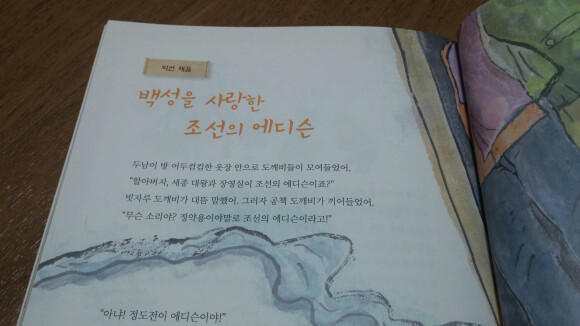 백성을 사랑한
조선의 에디슨
두남이 방 어두컴컴한 옷장 안으로 도깨비들이 모여들었어.
“할아버지, 세종 대왕과 장영실이 조선의 에디슨이죠?”
빗자루 도깨비가 대뜸 말했어. 그러자 공책 도깨비가 끼어들었어.
“무슨 소리야? 정약용이야말로 조선의 에디슨이라고!”
“아냐! 정도전이 에디슨이야!”